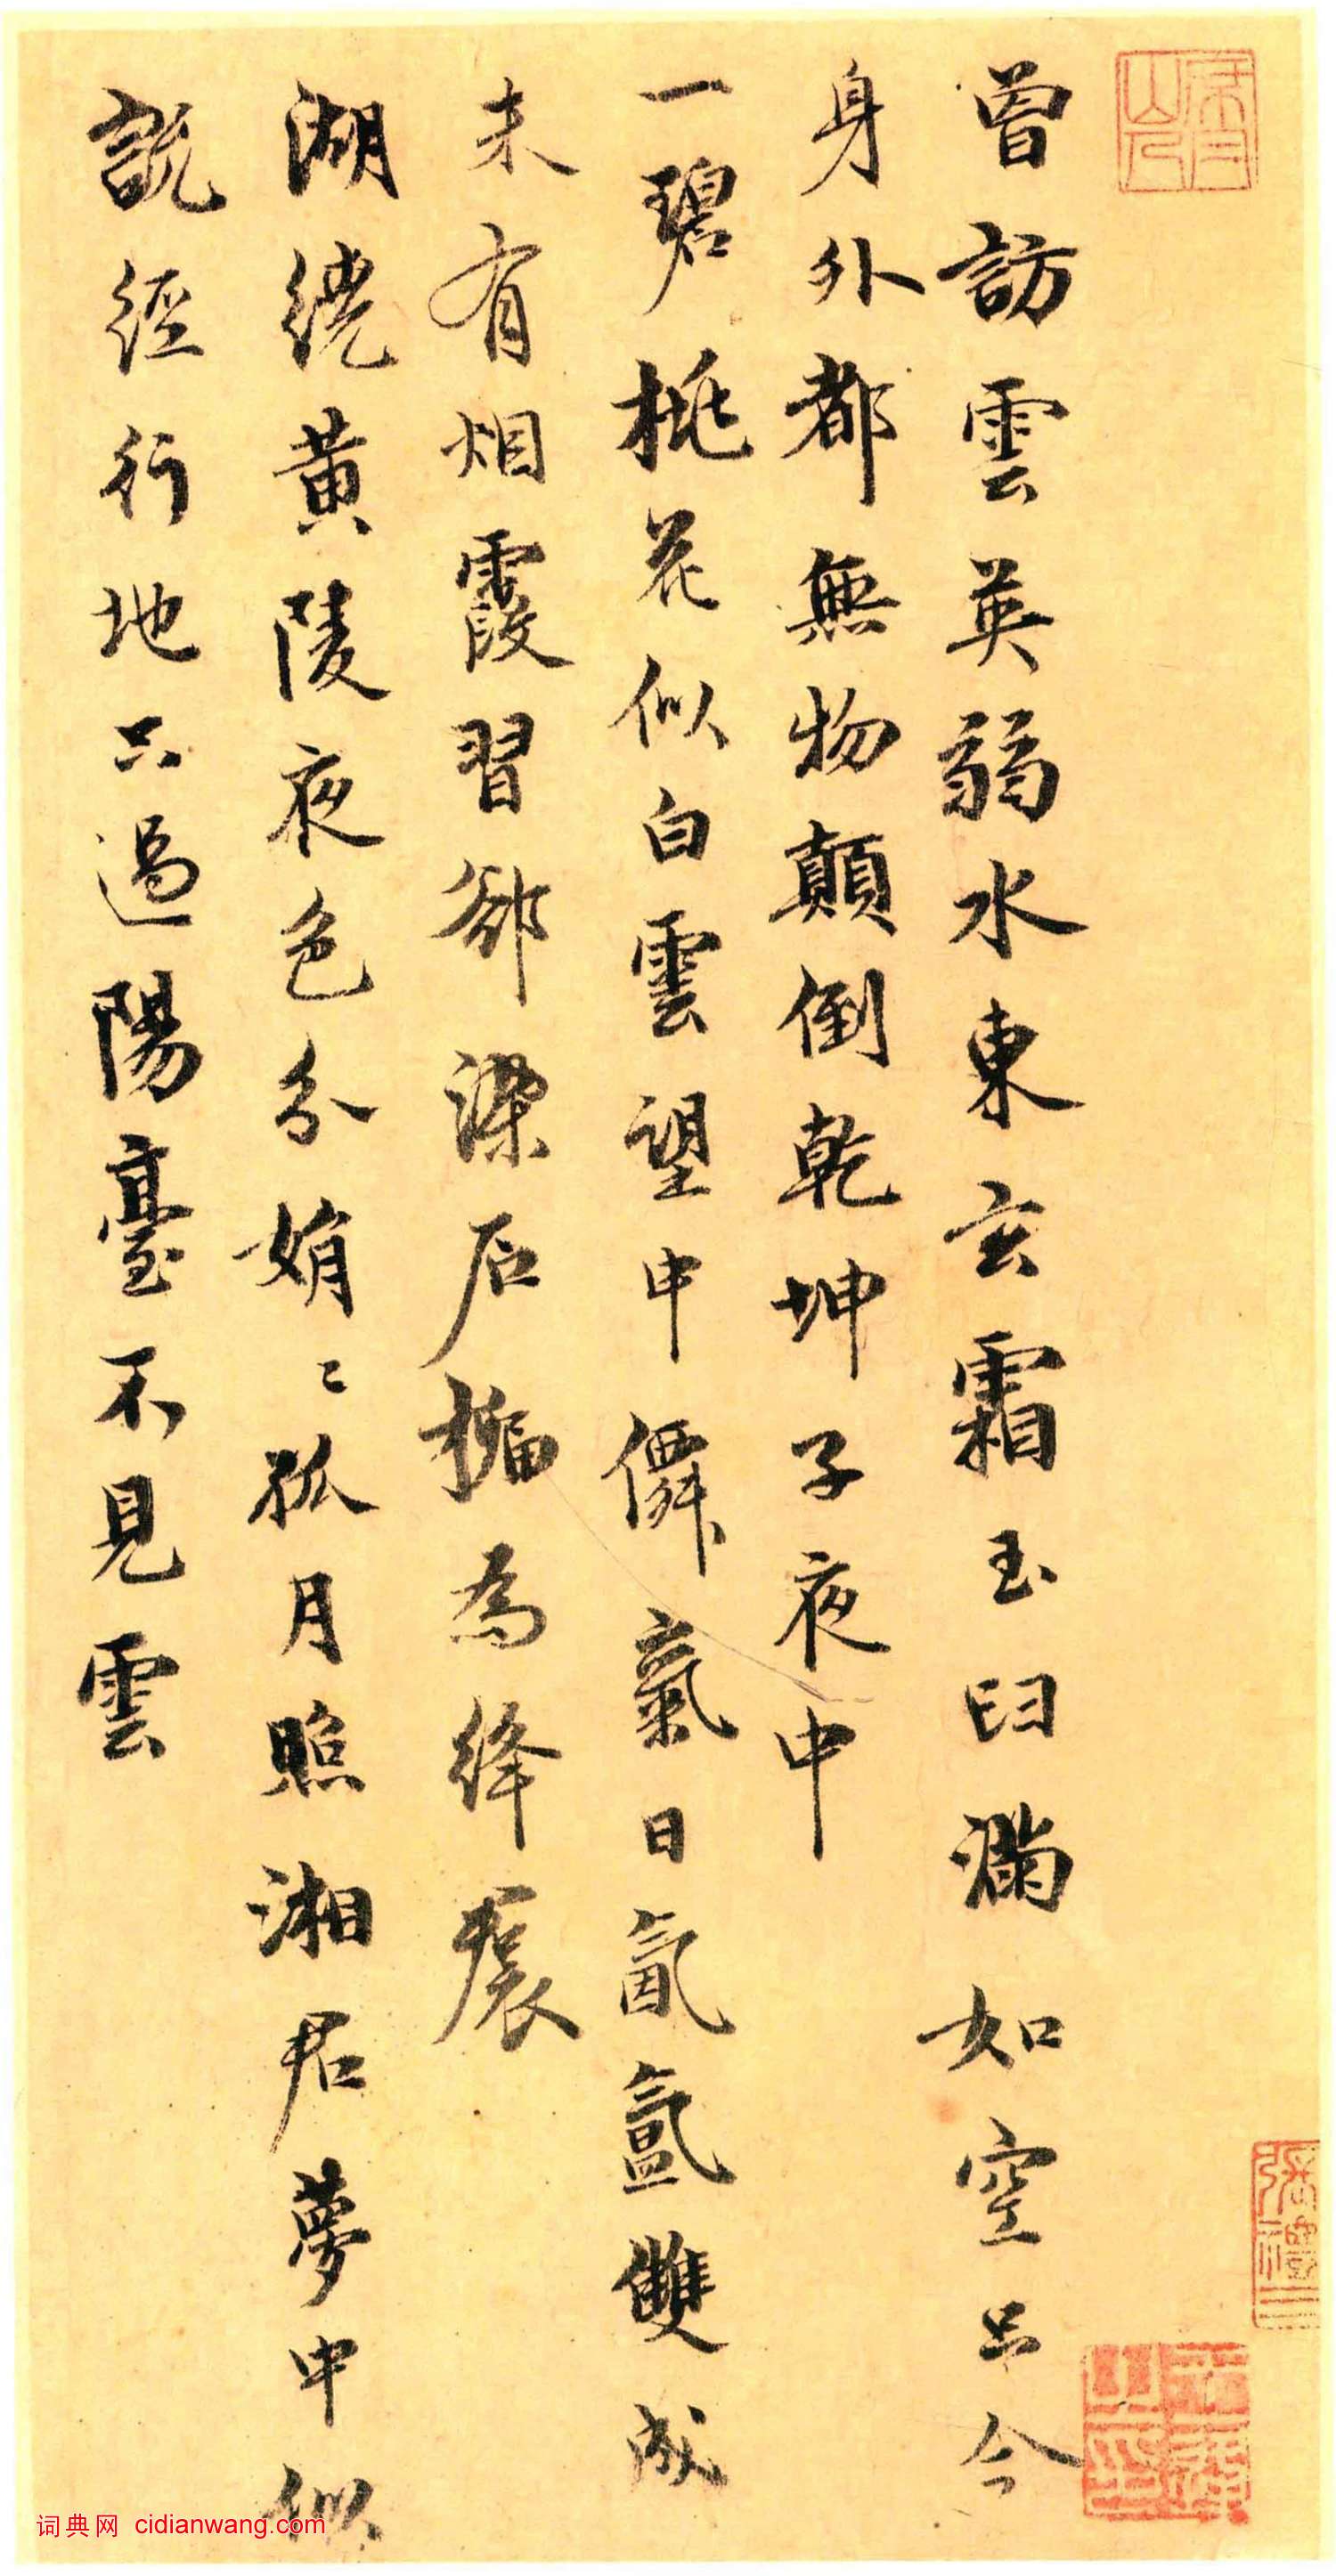 曾訪雲英弱水東玄霜玉臼滿如空只今
身外都無物顛倒乾坤子夜中
一碧桃花似白雲望中僊氣日氤氳雙成
未有烟霞習卻染石榴為絳裠
湖繞黃陵夜色分娟〻孤月照湘君夢中似
說經行地只過陽臺不見雲
词典网 cidianwang.com